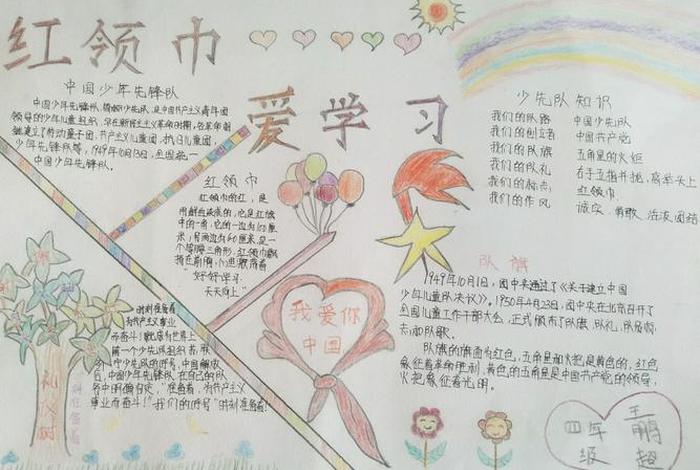 红领巾
爱学习
中国少年先锋队
中国少年先锋队,简称少先队,是中国共产主义青年团
领导的少年儿童组织,早在新民主主义革命时期,各革命
建立了劳动童子团,共产主义儿童团,抗日儿童团,
少年先锋队等,1949年10月13日,全国统一
中国少年先锋队。
红领巾
红领巾的红,是
用鲜血染成的,它是红旗
中的一角,它的一边
等腰三角形,红领巾飘
扬在前胸,心里默背着
“好好学习
天天向上”
少先队知识
我们的队路 中国少先队
我们的创立者 中国共产党
我们的队旗 五角星的火炬
我们的队礼 右手五指并拢,高举头上
我们的标志 红领巾
我们的作风 诚实、勇敢、活泼、团结
队旗
1949年10月1日,团中央通过了《关于建立中国
少年儿童队决议》,1950年4月23日,团中央在北京召开了
全国儿童工作干部大会,正式颁布了队旗,队礼,队
队歌。
队旗的旗面为红色,五角星和火把是黄色的,红色
象征着革命胜利,黄色的五角星是中国共产党的领导,
火把象征着光明。
我爱你
中国
时刻准备着
为共产主义事业
而奋斗!就是为世界上
第一个少先队组织者,
中国解放
后,中国少年先锋队在自己的队
章中明确有定,“准备着,为共产主义
事业而奋斗!”我们的呼号“时刻准备着!”
礼仪树
时刻准备着
四年级
王鹏超